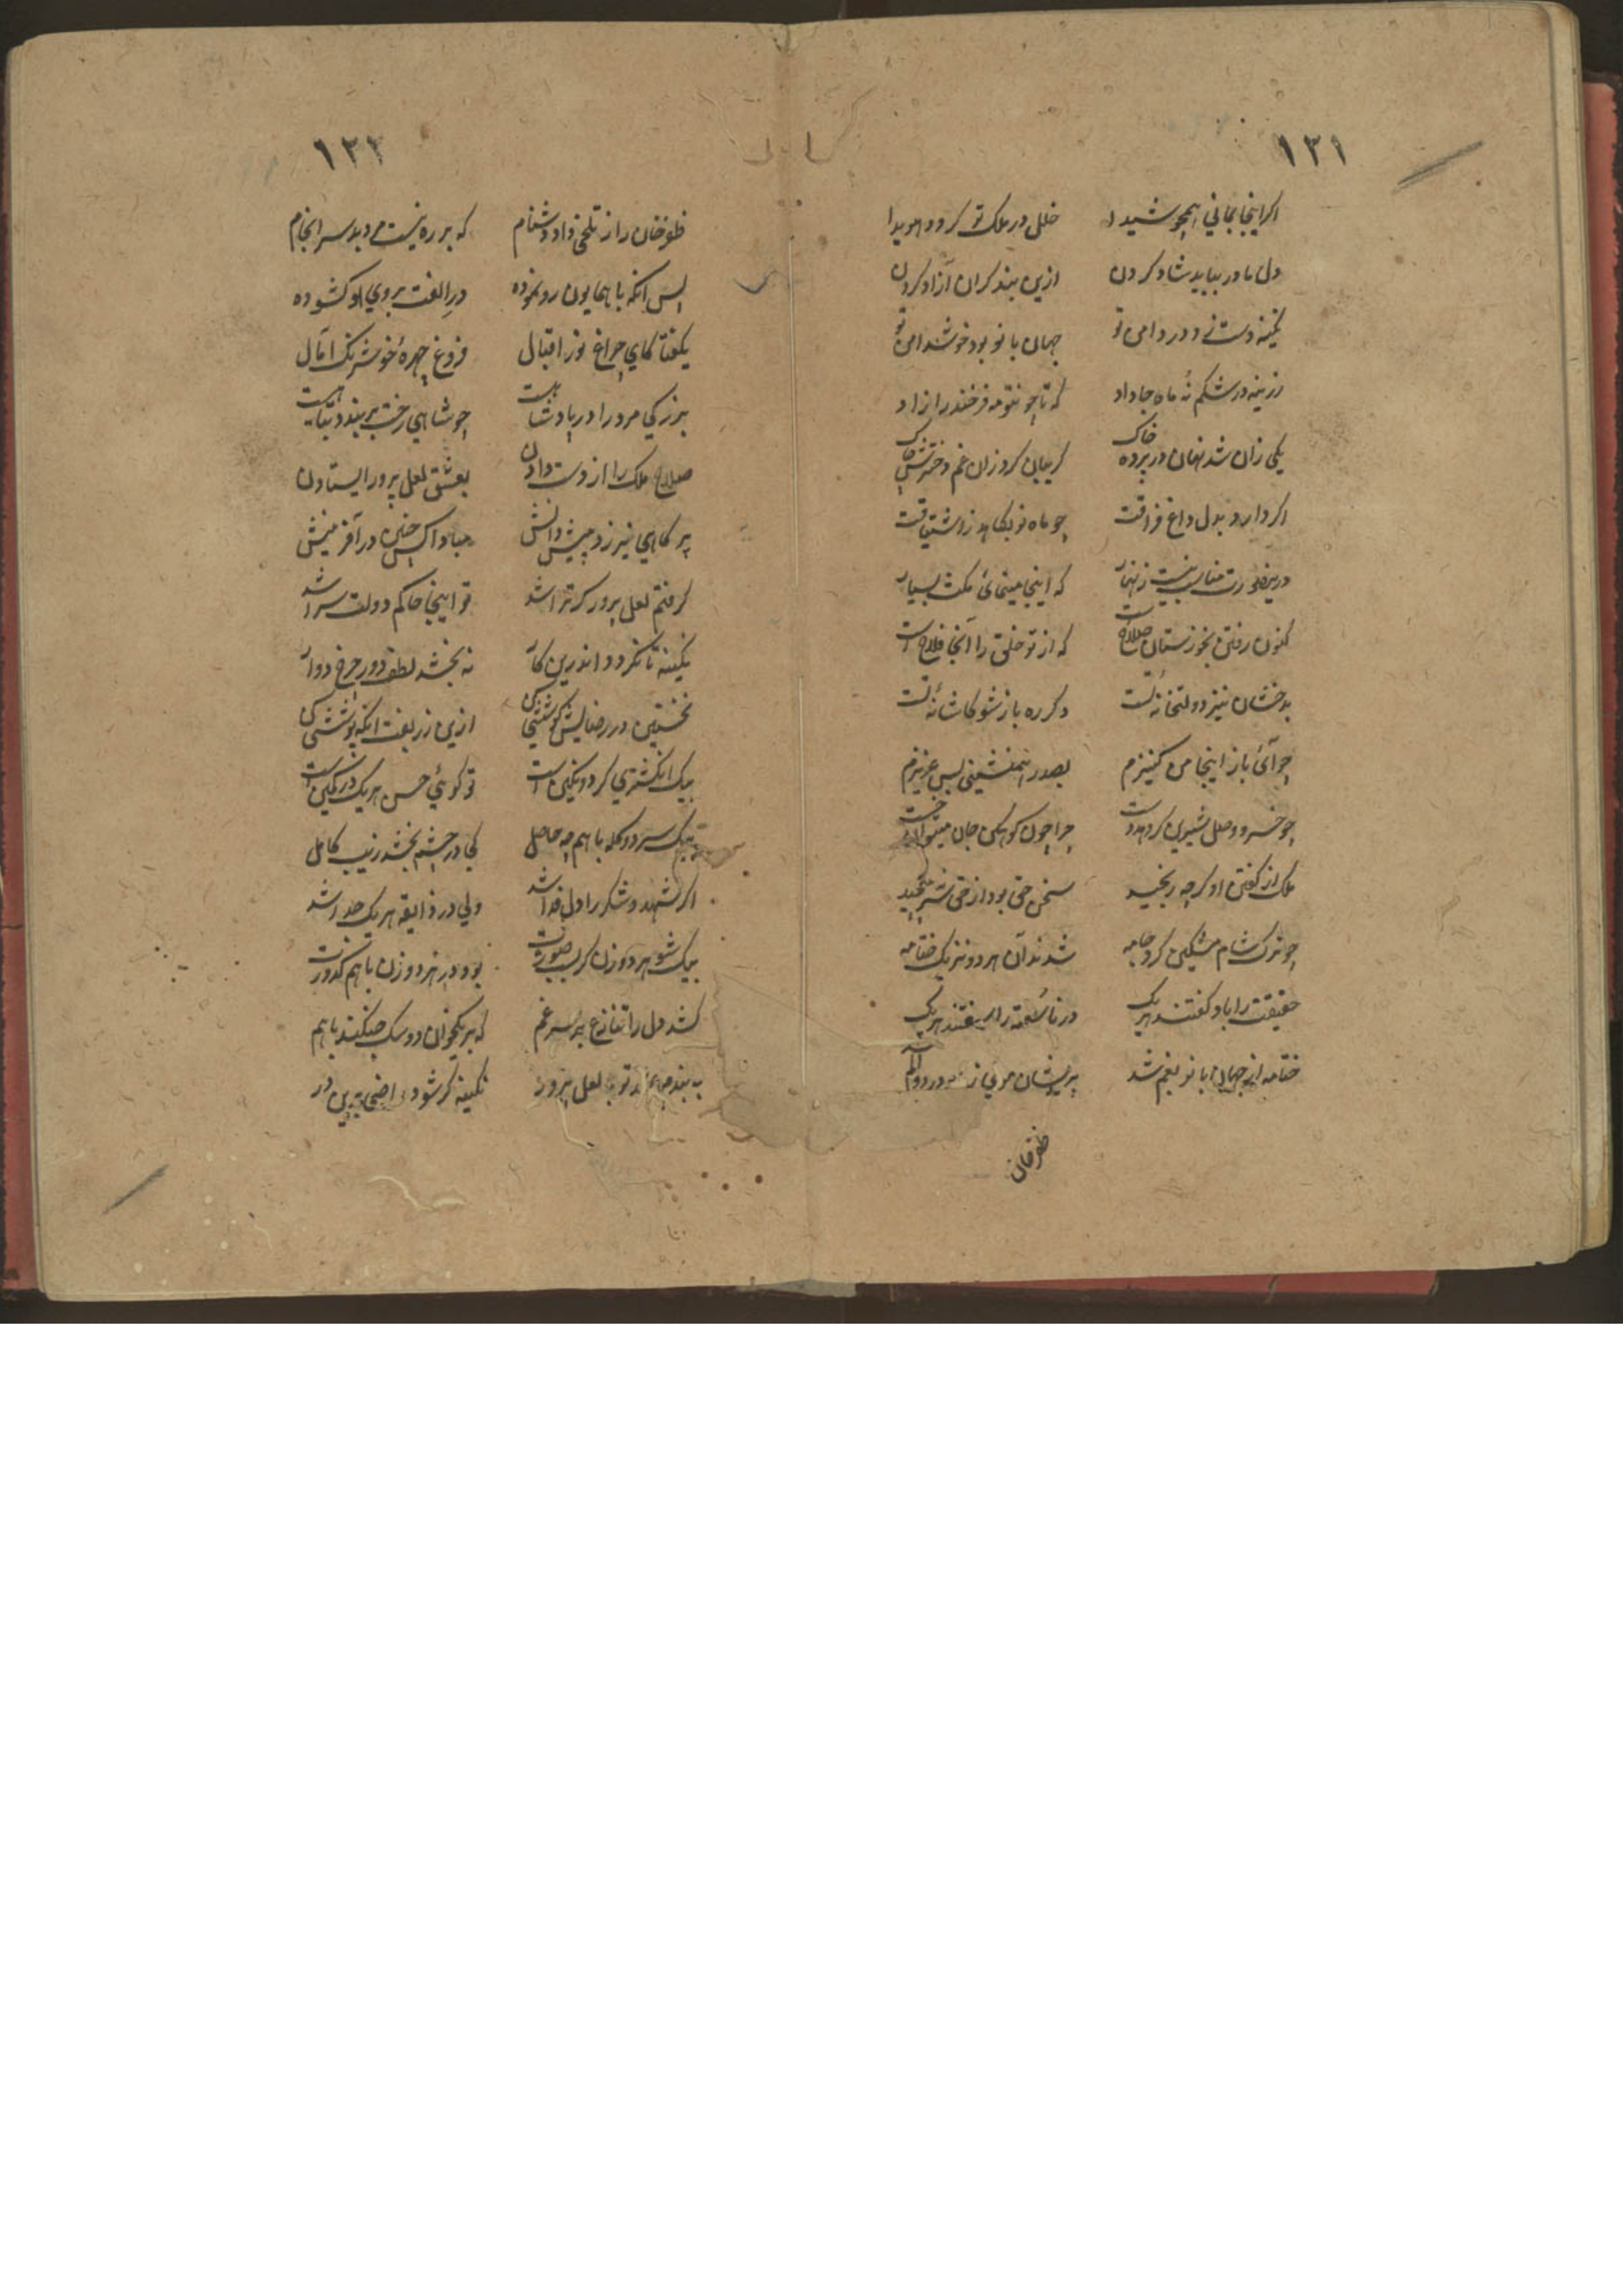 ١٢١
اکر اینجا بمانی همچو شیدا خلل در ملک تو کردد هویدا
دل مادر بباید شاد کردن ازین بند کران آزاد کردن
نکینه دست زد در دامن تو جهان بانو بود خوشدامن تو
که تا چو نتو مه فرخنده را زاد
یکی زان شد نهان در پرده خاک کریبان کرد زان غم دخترش چاک
اکر دارد بدل داغ فراقت چو ماه نو بکاهد ز اشتیاقت
که اینجا مینمائی مکث بسیار
کنون رفتن بخوزستان صلاحست که از تو خلق را آنجا فلاح است
بدخشان نیز دولتخانه تست دکر ره باز شو کاشانه تست
چو آئی باز اینجا من کنیزم بصدر همنشینی بس عزیزم
چو خسرو وصل شیرین کردهدست چرا چون کوهکن جان
ملک از کفتن او کرچه رنجید سخن حق بود از حق سر نپیچید
چو ترک شام مشکین کرد جامه شدند آن هر دو نزدیک ختامه
حقیقت را باو کفتند هریک در ناسفته را سفتند هریک
ختامه از جهان بانو بغم شد پریشان موی از
ظفرخان
١٢٢
ظفرخان را ز تلخی داد دشنام که بر ره نیست مردد بد سرانجام
پس آنکه با همایون رو نموده در الفت بروی او کشوده
بکفتا کای چراغ نور اقبال فروغ چهرهٔ خوش رنک آمال
بزرکی مرد را در پادشاهیست چو شاهی رخت بر بندد تباهیست
صلاح ملک را از دست دادن بعشق لعل پرور ایستادن
پر کاهی نیرزد پیش دانش مبادا کس چنین در آفرینش
کرفتم لعل پرور کر ترا شد تو اینجا حاکم دولت سرا شد
نکینه تا نکردد اندرین کار نه بخشد لطف دور چرخ دوار
نخستین در رضایش کوششی کن ازین زربفت آنکه پوششی کن
بیک انکشتری کر دو نکین است تو کوئی حسن هر یک در نکین است
بیک سر دو کله با هم چه حاصل کی در چشم بخشد زیب کامل
اکر شهد و شکر را دل فدا شد ولی در ذایقه هریک جدا شد
بیک شوهر دو زن کر بصورت بود در هر دو زن با هم کدورت
کشد دل را تنازع بر سر غم که بر یکخوان دو سک جنکند با هم
لعل پرور نکینه کر شود راضی بدین در